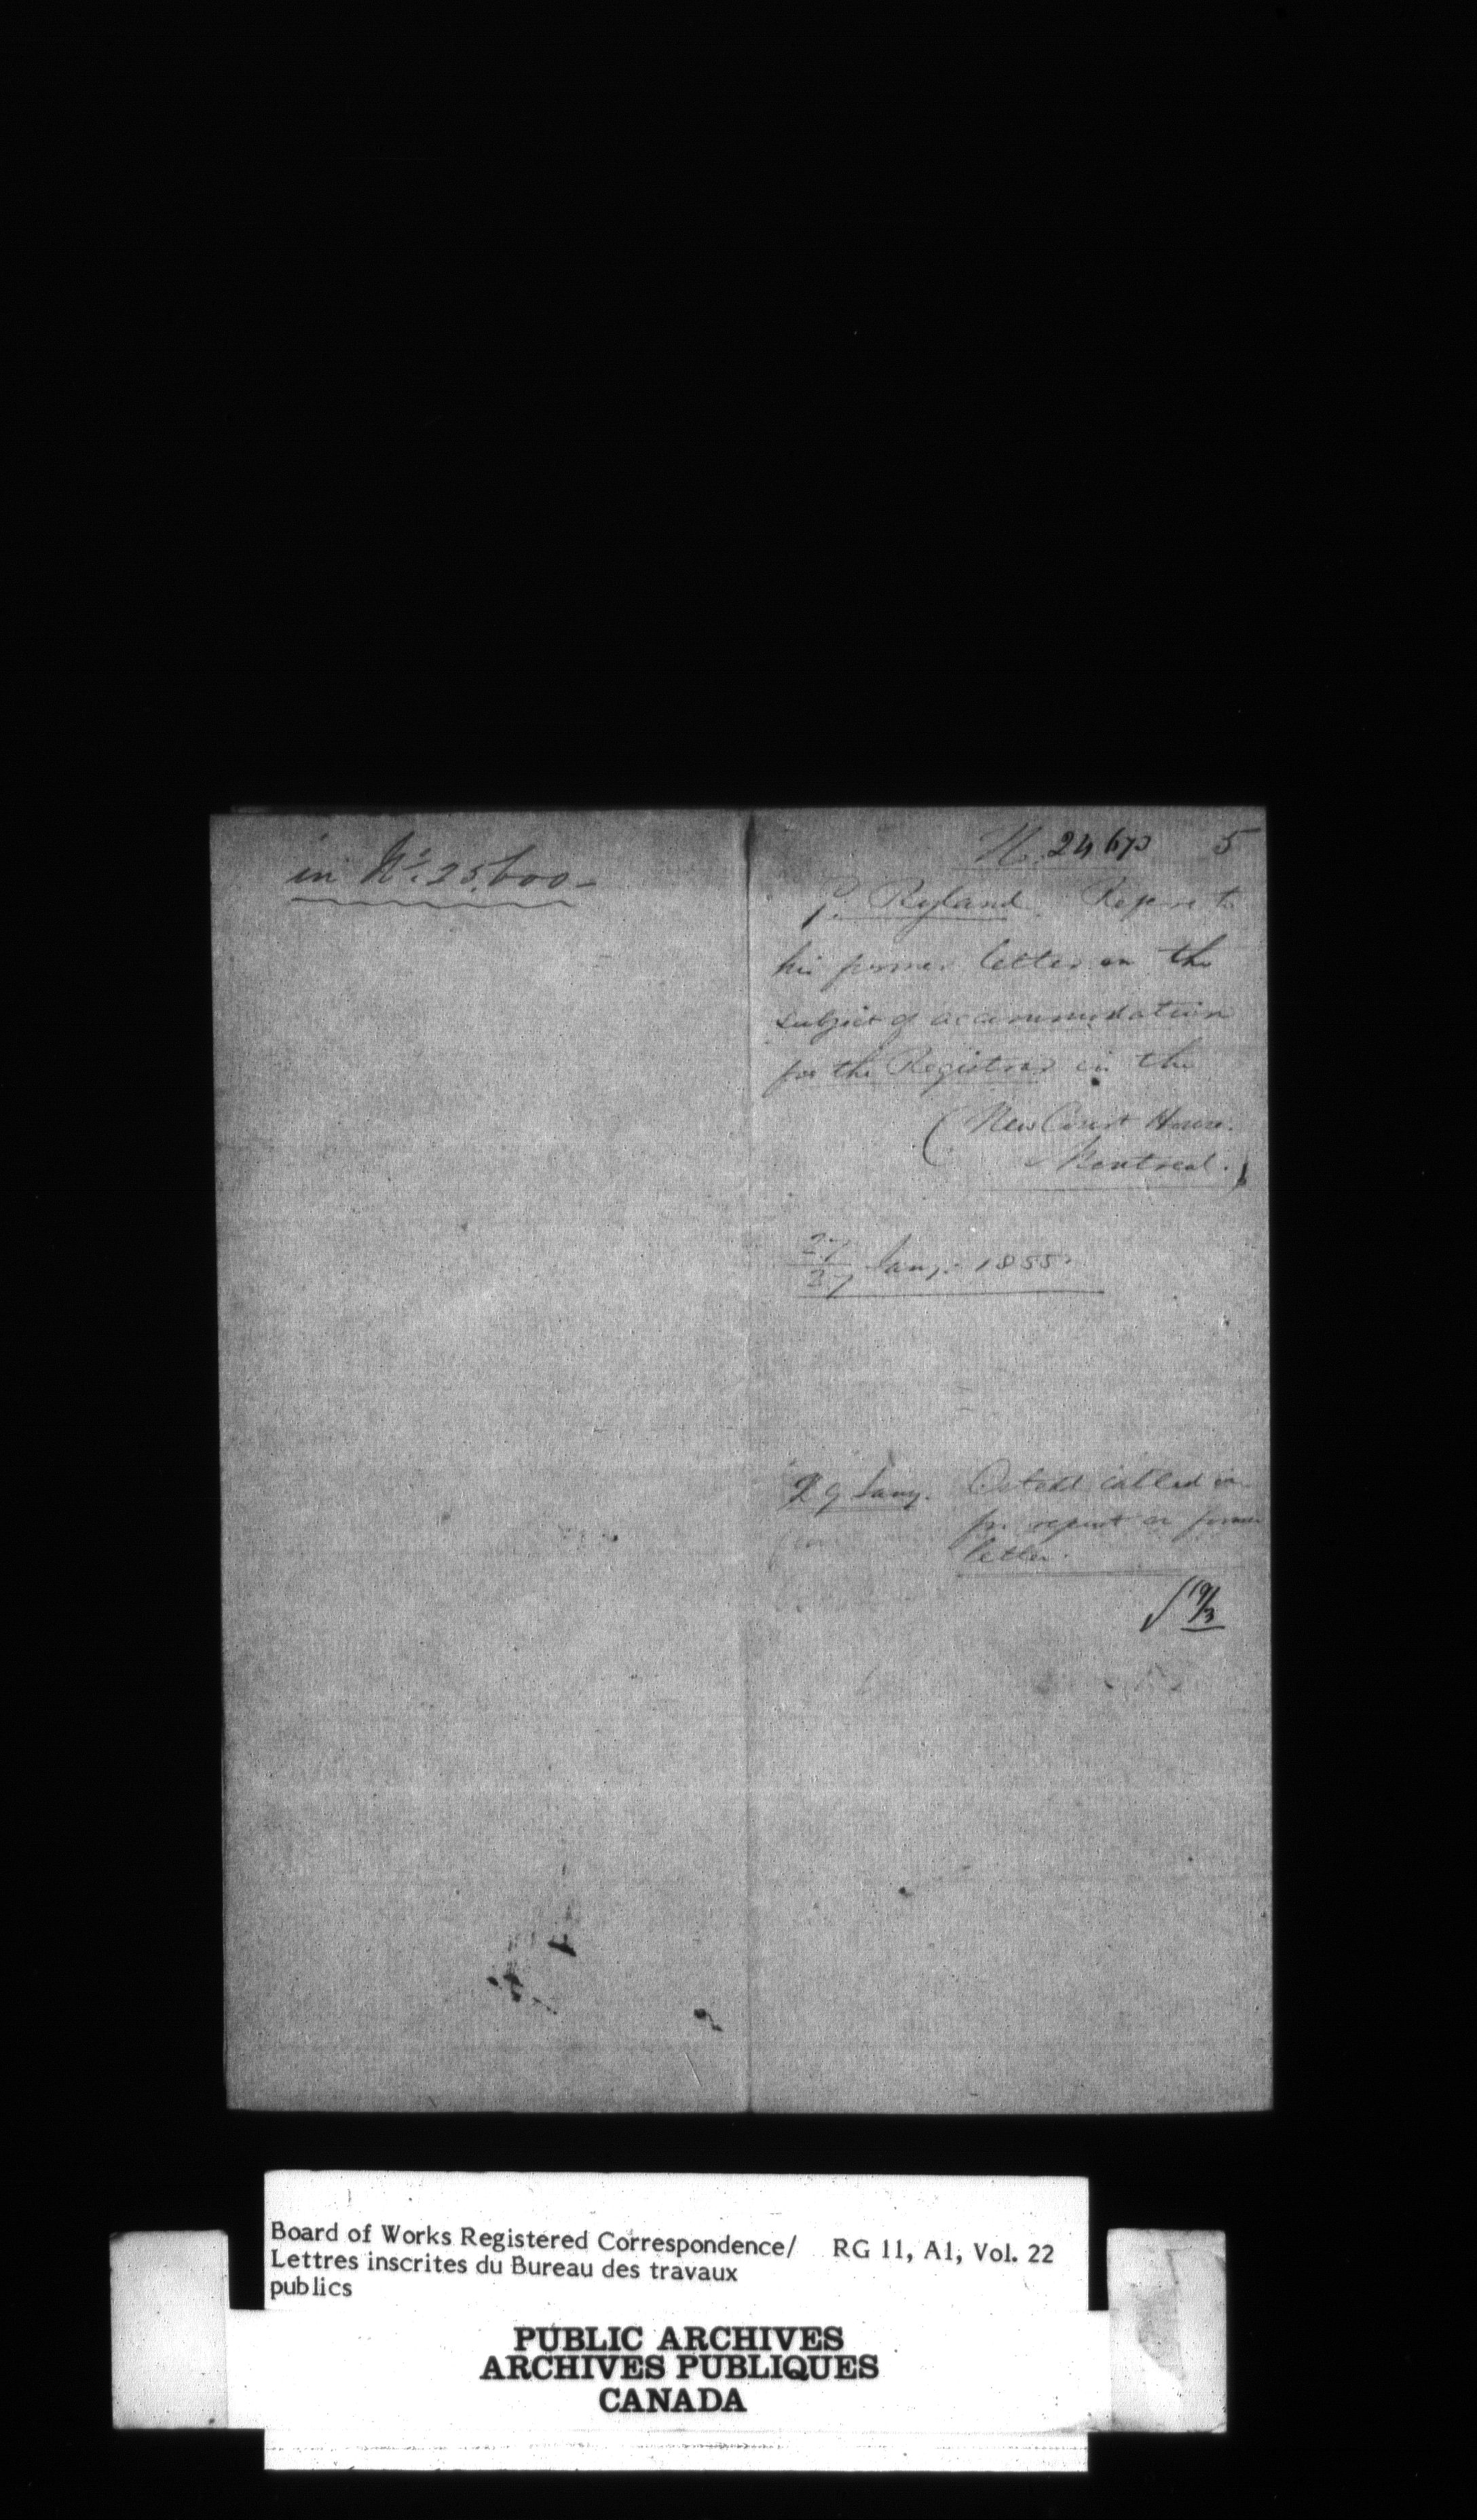 in No. 25,600 -
N. 24673 5
G. Ryland. Refers to
his former letter on the
subject of accommodation
for the Registrar in the
(New Court House.
Montreal.)
27/27 Jany. 1855.
29 Jany. Ostell called on
for report on former
letter.
19/3
Board of Works Registered Correspondence/ RG 11, A1, Vol. 22
Lettres inscrites du Bureau des travaux
publics
PUBLIC ARCHIVES
ARCHIVES PUBLIQUES
CANADA